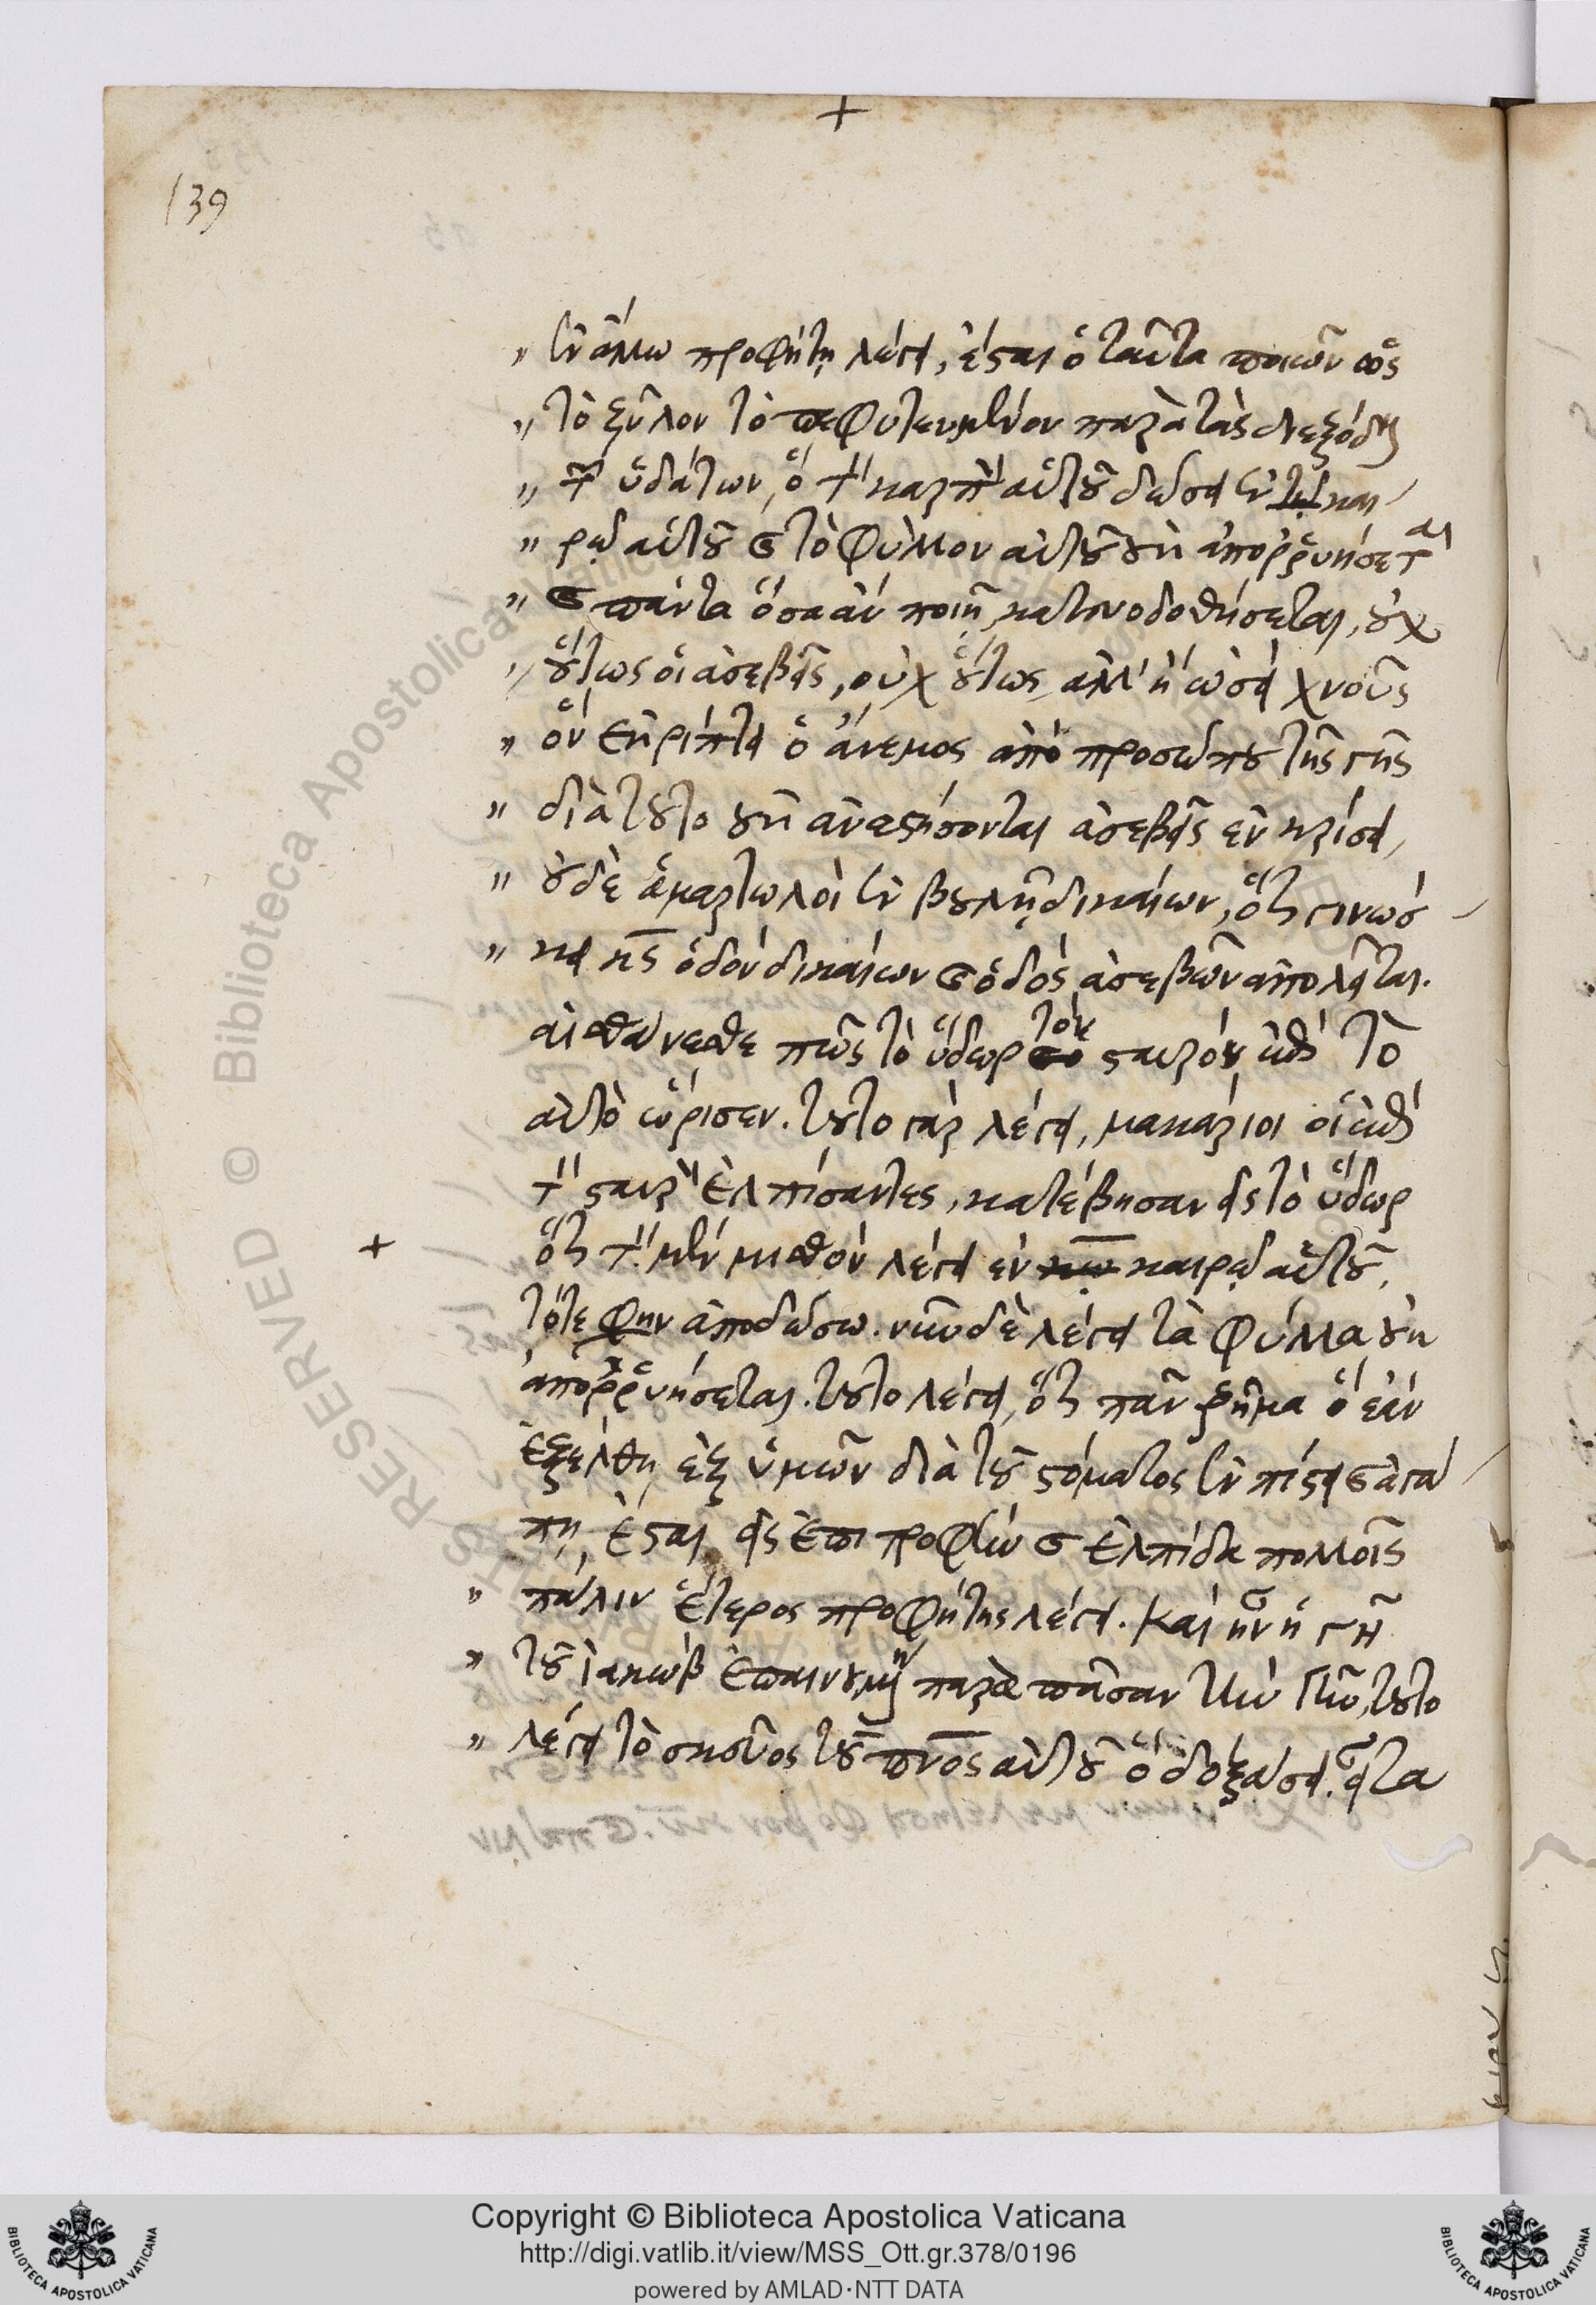 +
139
" ἐν ἄλλω προφήτῃ λέγει, ἔσται ὁ ταῦτα ποιῶν ὡς
" τὸ ξύλον τὸ πεφυτευμένον παρὰ τὰς διεξόδους
" τῶν ὑδάτων, ὃ τὸν καρπὸν αὐτοῦ δώσει ἐν τῷ και
" ρῷ αὐτοῦ καὶ τὸ φύλλον αὐτοῦ οὐκ ἀποῤῥυήσεται
" καὶ πάντα ὅσα ἂν ποιῇ κατευοδοθήσεται, οὐχ
" οὕτως οἱ ἀσεβεῖς, οὐχ οὕτως, ἀλλ' ἢ ὡσεὶ χνοῦς
" ὃν ἐκρίπτει ὁ ἄνεμος ἀπὸ προσώπου τῆς γῆς
" διὰ τοῦτο οὐκ ἀναστήσονται ἀσεβεῖς ἐν κρίσει,
" οὐδὲ ἁμαρτωλοὶ ἐν βουλῇ δικαίων, ὅτι γινώσ
" κει κς ὁδὸν δικαίων καὶ ὁδὸς ἀσεβῶν ἀπολεῖται.
αἰσθάνεσθε πῶς τὸ ὕδωρ τὸν σταυρὸν ἐπὶ τὸ
αὐτὸ ὥρισεν. τοῦτο γὰρ λέγει, μακάριοι οἳ ἐπὶ
τὸν σταυρὸν ἐλπίσαντες, κατέβησαν εἰς τὸ ὕδωρ
+ ὅτι τὸν μὲν μισθὸν λέγει ἐν καιρῷ αὐτοῦ,
τότε φην ἀποδώσω. νῦν δὲ λέγει τὰ φύλλα οὐκ
ἀποῤῥυήσεται. τοῦτο λέγει, ὅτι πᾶν ῥῆμα ὃ ἐὰν
ἐξέλθη ἐξ ὑμῶν διὰ τοῦ στόματος ἐν πίστει καὶ ἀγά
πη, ἔσται εἰς ἐπιστροφὴν καὶ ἐλπίδα πολλοῖς
" πάλιν ἕτερος προφήτης λέγει. Καὶ ἦν ἡ γῆ
" τοῦ ἰακὼβ ἐπαινουμένη παρὰ πᾶσαν τὴν γῆν, τοῦτο
" λέγει τὸ σκεῦος τοῦ πνος αὐτοῦ ὃ δοξάσει. εἶτα
Copyright © Biblioteca Apostolica Vaticana
http://digi.vatlib.it/view/MSS_Ott.gr.378/0196
powered by AMLAD·NTT DATA